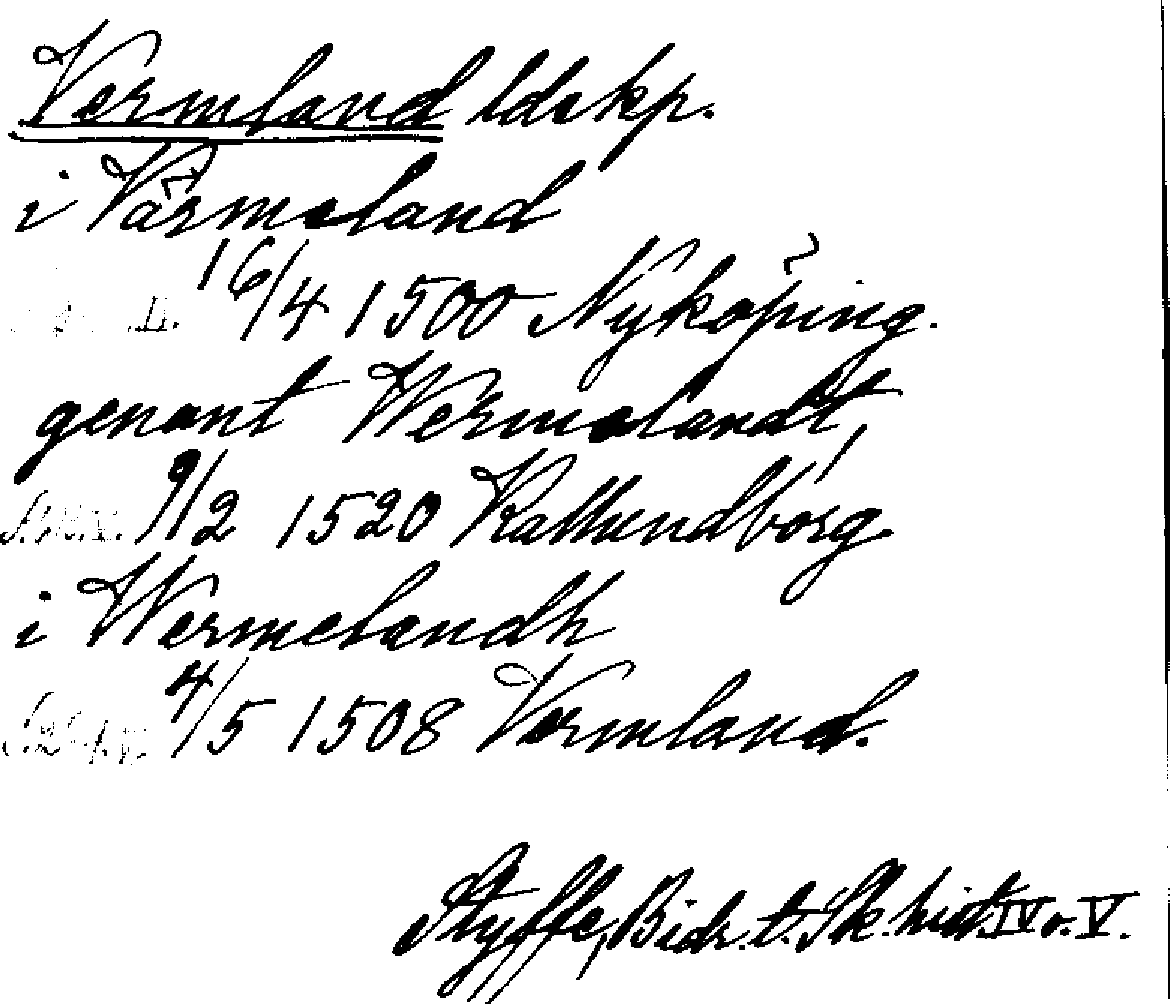 Vermland ldskp.
i Värmeland
16/4 1500 Nyköping.
genant Wermelandt,
9/2 1520 Kallundborg.
i Wermelandh
4/5 1508 Vermland.
Styffe, Bidr. t. Sk. hist. IV o. V.